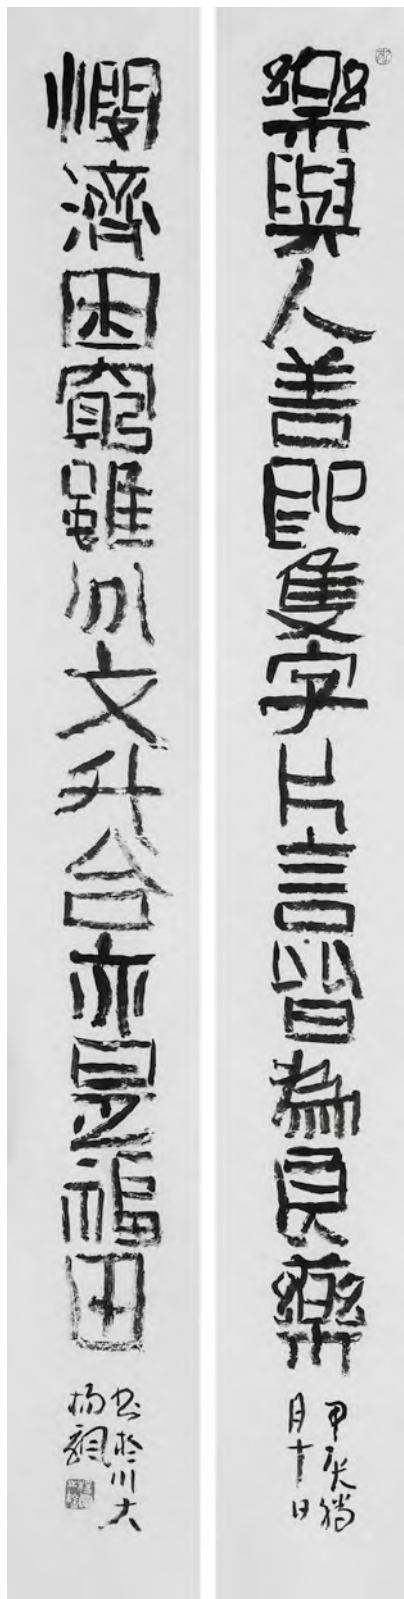 樂與人善即隻字片言皆為良藥
甲辰腊
月十日
憫濟困窮雖分文升合亦是福田
书於川大